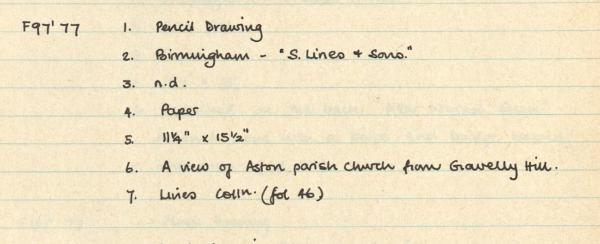 F97'77 1. Pencil Drawing
2. Birmingham - "S. Lines & Sons."
3. n.d.
4. Paper
5. 11¼" x 15½"
6. A view of Aston parish church from Gravelly Hill.
7. Lines Colln. (fol 46)